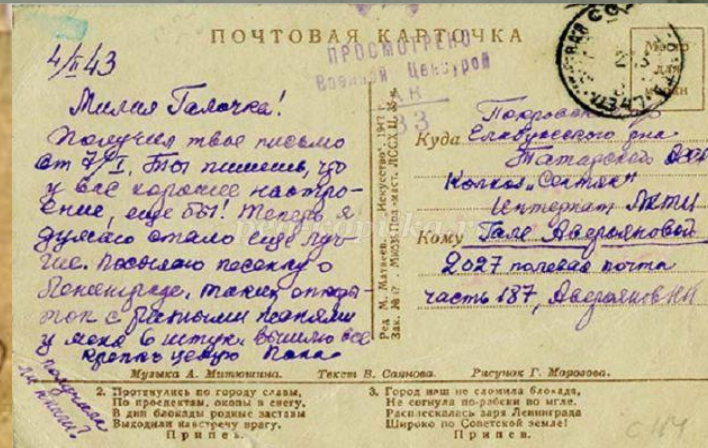 ПОЧТОВАЯ КАРТОЧКА
ПРОСМОТРЕНО
Военной Цензурой
4/II 43
Милая Галочка!
Получил твое письмо
от 7/I. Ты пишешь, что
у вас хорошее настро-
ение, еще бы! Теперь я
думаю стало еще луч-
ше. Посылаю песенку о
Ленинграде, таких откры-
ток с разными песнями
у меня 6 штук. вышлю все
Крепко целую Папа
получила
ли книги?
Место
для
марки
Куда
Елабужского р-на
Татарской
Колхоз
Интернат
Кому Гале Аверьяновой
2027 полевая почта
часть 187, Аверьянов
Ред. М. Матвеев. „Искусство". 194
Музыка А. Митюшина. Текст В. Саянова. Рисунок Г. Морозова.
2. Протянулись по городу славы,
По проспектам, окопы в снегу,
В дни блокады родные заставы
Выходили навстречу врагу.
Припев.
3. Город наш не сломила блокада,
Не согнула по-рабски во мгле.
Расплескалась заря Ленинграда
Широко по Советской земле!
Припев.